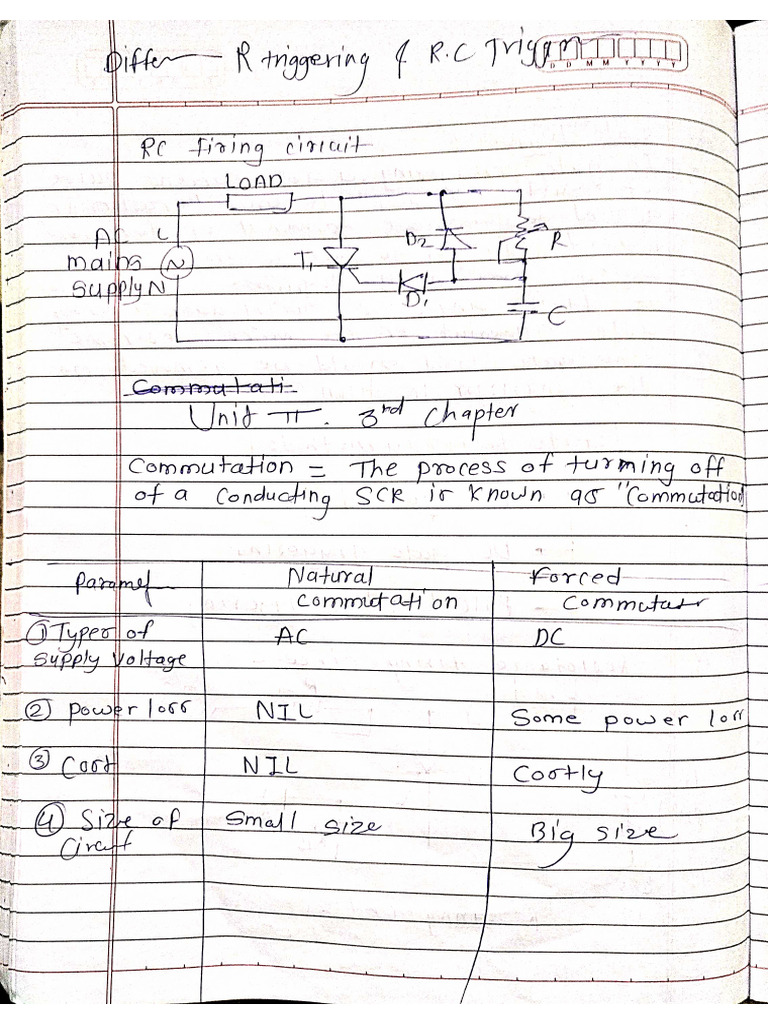 Differ R triggering & R.C Trigger
D D M M Y Y Y Y
RC firing circuit
LOAD
AC L
mains
supply N
T1
D2
R
D1
C
Commutati
Unit II. 3rd Chapter
Commutation = The process of turming off
of a conducting SCR is known as "Commutation
Paramet Natural Forced
commutation commutatir
① Types of AC DC
supply voltage
② power loss NIL Some power loss
③ Cost NIL Costly
④ Size of Small size Big size
Circuit